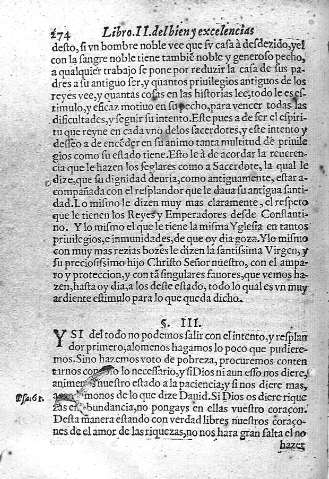 274 Libro. II. del bien y excelencias
desto, si vn hombre noble vee que su casa à desdezido, y el
con la sangre noble tiene tambiē noble y generoso pecho,
a qualquier trabajo se pone por reduzir la casa de sus pa-
dres a su antiguo ser, y quantos priuilegios antiguos de los
reyes vee, y quantas cosas en las historias lee, todo le es es-
timulo, y eficaz motiuo en su pecho, para vencer todas las
dificultades, y seguir su intento. Este pues a de ser el espiri-
tu que reyne en cada vno delos sacerdotes, y este intento y
desseo a de encēder en su animo tanta multitud de priuile
gios como su estado tiene. Esto le à de acordar la reueren-
cia que le hazen los seglares como a Sacerdote, la qual le
dize, que su dignidad deuria, como antiguamente, estar a-
compañada con el resplandor que le daua su antigua santi-
dad. Lo mismo le dizen muy mas claramente, el respeto
que le tienen los Reyes y Emperadores desde Constanti-
no. Y lo mismo el que le tiene la misma Yglesia en tantos
priuilegios, e inmunidades, de que oy dia goza. Y lo mismo
con muy mas rezias bozes le dizen la santissima Virgen, y
su preciosissimo hijo Christo Señor nuestro, con el ampa-
ro y proteccion, y con tā singulares fauores, que vemos ha-
zen, hasta oy dia, a los deste estado, todo lo qual es vn muy
ardiente estimulo para lo que queda dicho.
§. III.
Y SI del todo no podemos salir con el intento, y resplan
dor primero, alomenos hagamos lo poco que pudiere-
mos. Sino hazemos voto de pobreza, procuremos conten
tarnos con lo necessario, y si Dios ni aun esso nos diere,
animen nuestro estado a la paciencia, y si nos diere mas,
monos de lo que dize Dauid. Si Dios os diere rique
Psa. 61. zas en bundancia, no pongays en ellas vuestro coraçon.
Desta manera estando con verdad libres nuestros coraço-
nes de amor de las riquezas, no nos hara gran falta el no
hazer